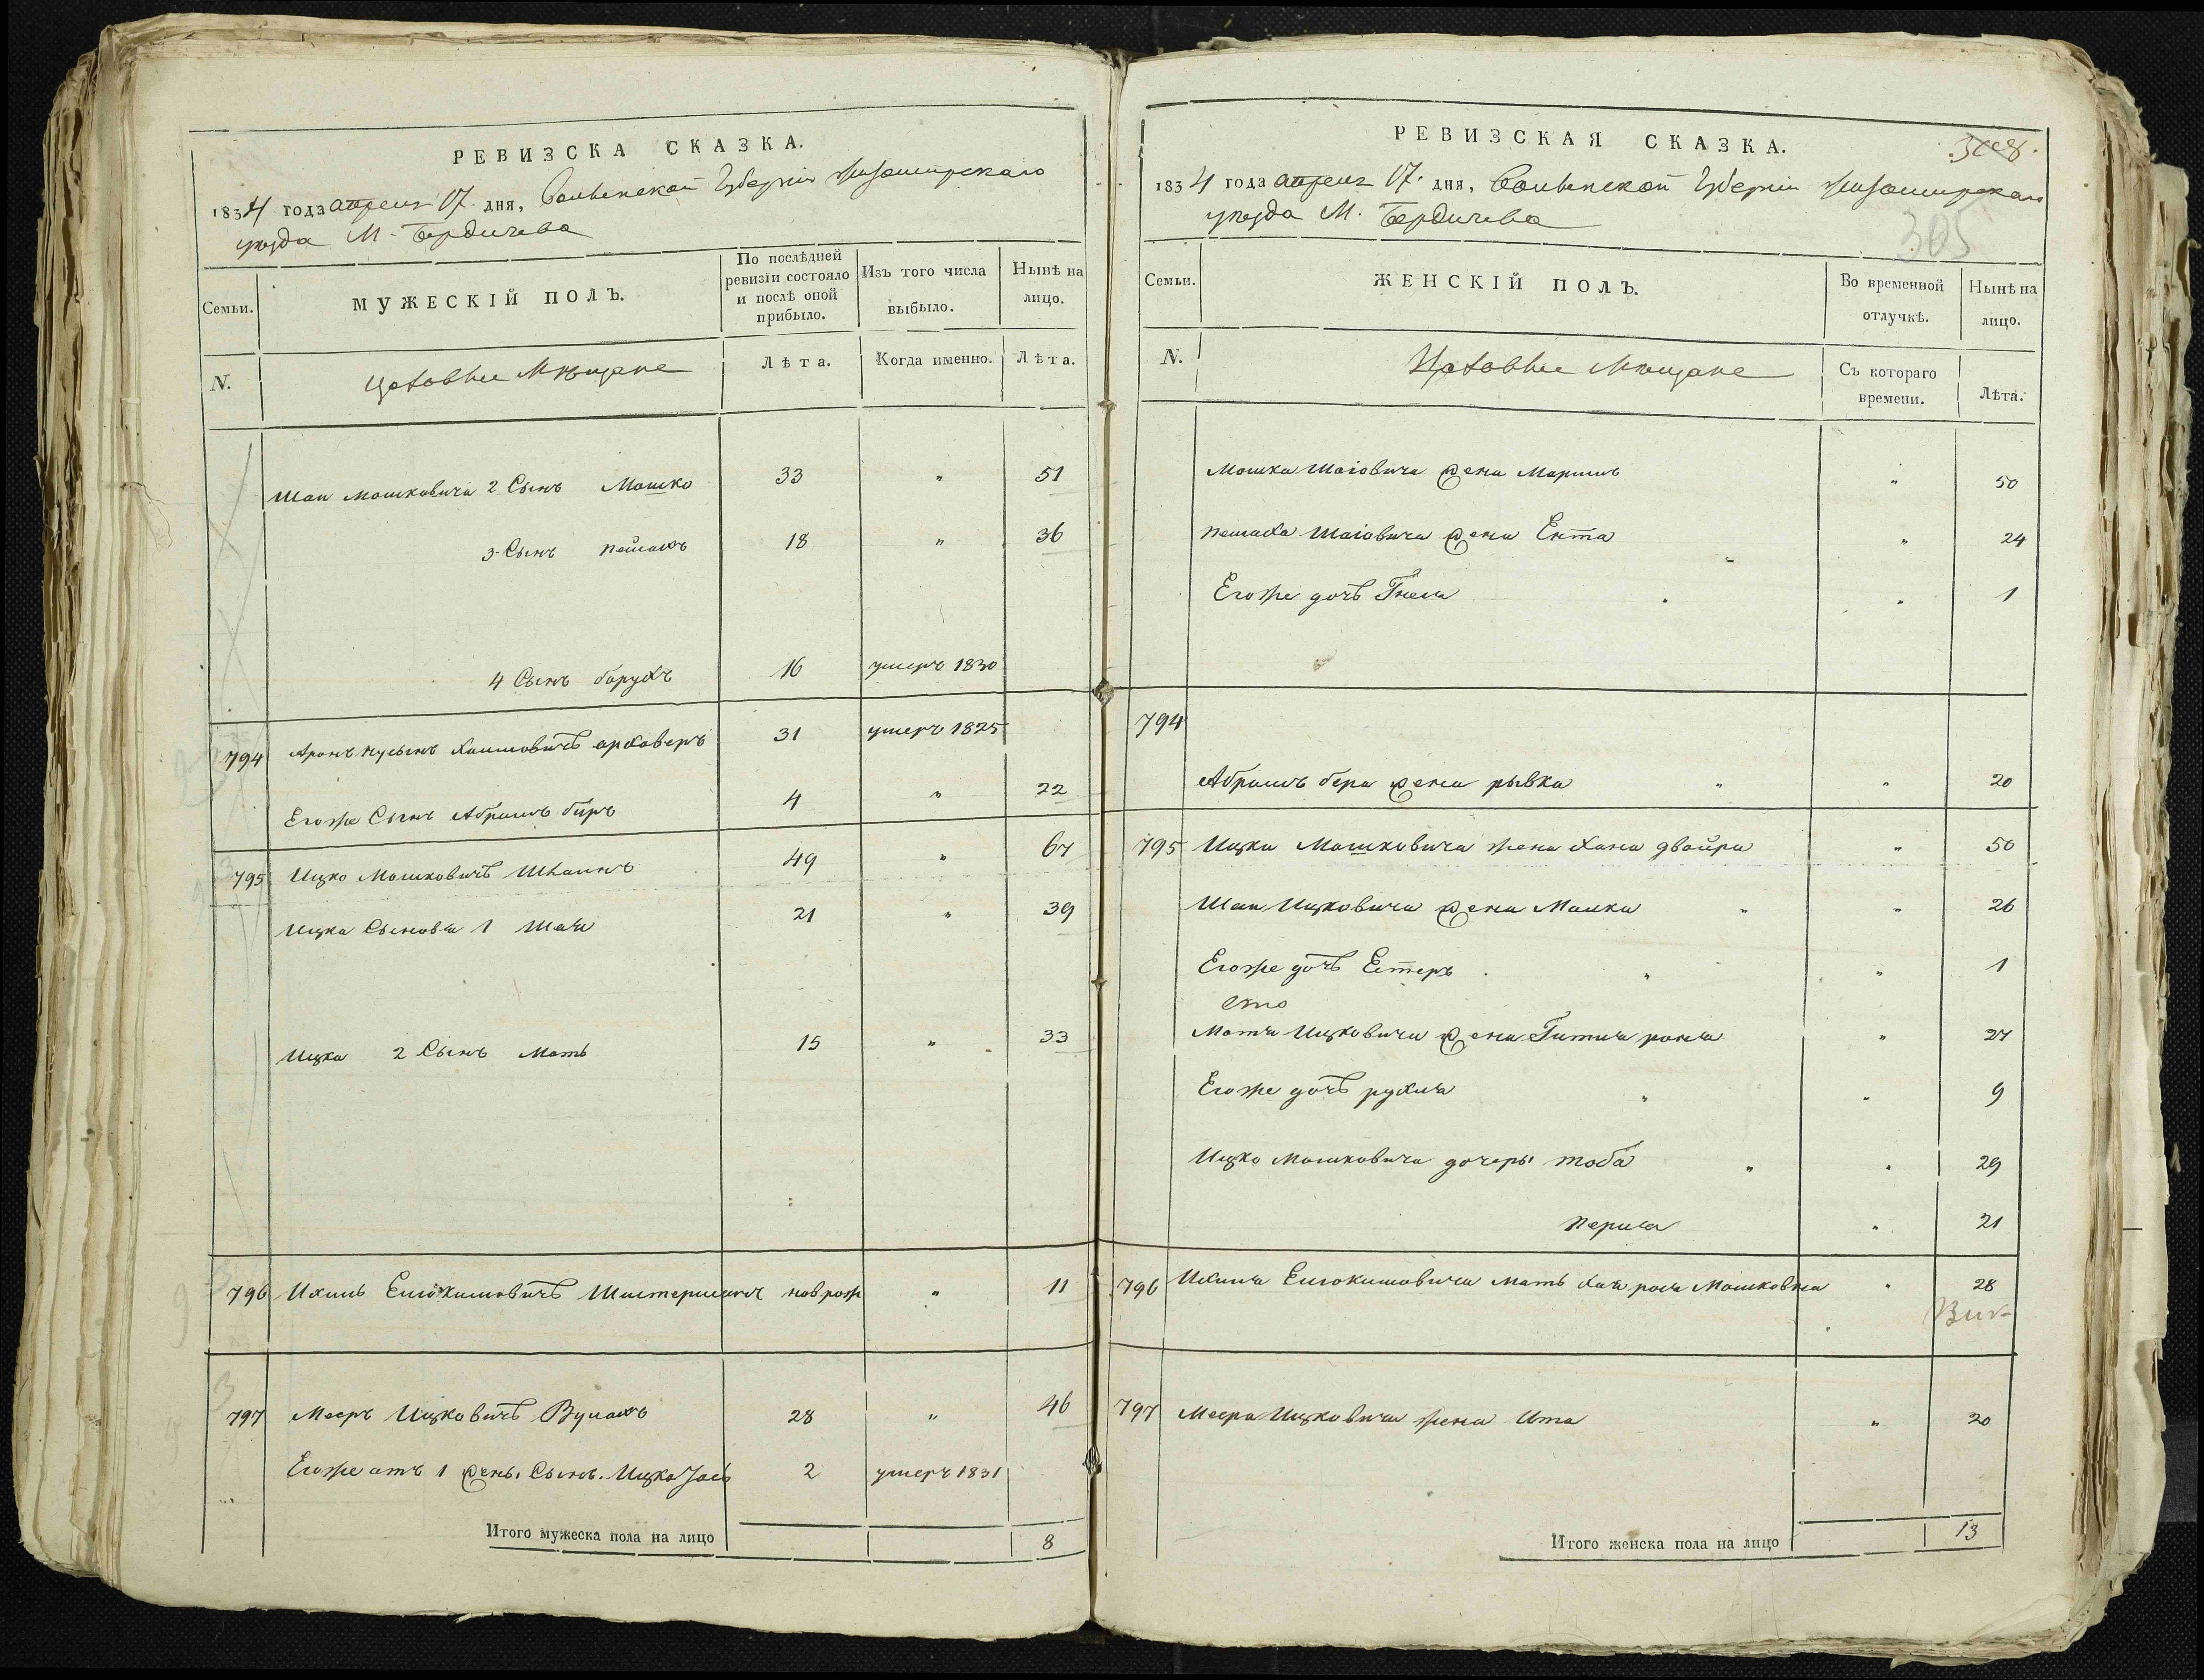 РЕВИЗСКА СКАЗКА.
1834 года апреля 17 дня, Волынской Губернии Житомирскаго
уезда М. Бердичева
Семьи.
МУЖЕСКІЙ ПОЛЪ.
По послѣдней
ревизіи состояло
и послѣ оной
прибыло.
Изъ того числа
выбыло.
Нынѣ на
лицо.
N.
Цеховые Мещане
Лѣта.
Когда именно.
Лѣта.
Шаи Мошковича 2 Сынъ Мошко 33 " 51
3 Сынъ пейсахъ 18 " 36
4 Сынъ барухъ 16 умеръ 1830
794 Аронъ нусынъ Хаимовичъ 31 умеръ 1825
Егоже Сынъ Абрамъ бѣръ 4 " 22
795 Ицко Мошковичъ 49 " 67
Ицка Сыновья 1 Шая 21 " 39
Ицка 2 Сынъ Моть 15 " 33
796 новрож " 11
797 Мееръ Ицковичъ 28 " 46
Егоже отъ 1 жены Сынъ Ицко Іось 2 умеръ 1831
Итого мужеска пола на лицо 8
РЕВИЗСКАЯ СКАЗКА.
305
1834 года апреля 17 дня, Волынской Губернии Житомирскаго
уезда М. Бердичева
Семьи.
ЖЕНСКІЙ ПОЛЪ.
Во временной
отлучкѣ.
Нынѣ на
лицо.
N.
Цеховые Мещане
Съ котораго
времени.
Лѣта.
Мошка Шаіовича жена " 50
пейсаха Шаіовича жена Ента " 24
Егоже дочь Гнеся " 1
794
Абрамъ бера жена рывка " " 20
795 Ицка Мошковича жена Хана двойра " 50
Шаи Ицковича жена Малка " " 26
Егоже дочь Естеръ " " 1
Мотя Ицковича жена Гитля " 27
Егоже дочь рухля " " 9
Ицко Мошковича дочеры тоба " " 29
перля " 21
796 мать Хая Мошковна " 28
797 Меера Ицковича жена Ита " 20
Итого женска пола на лицо 13